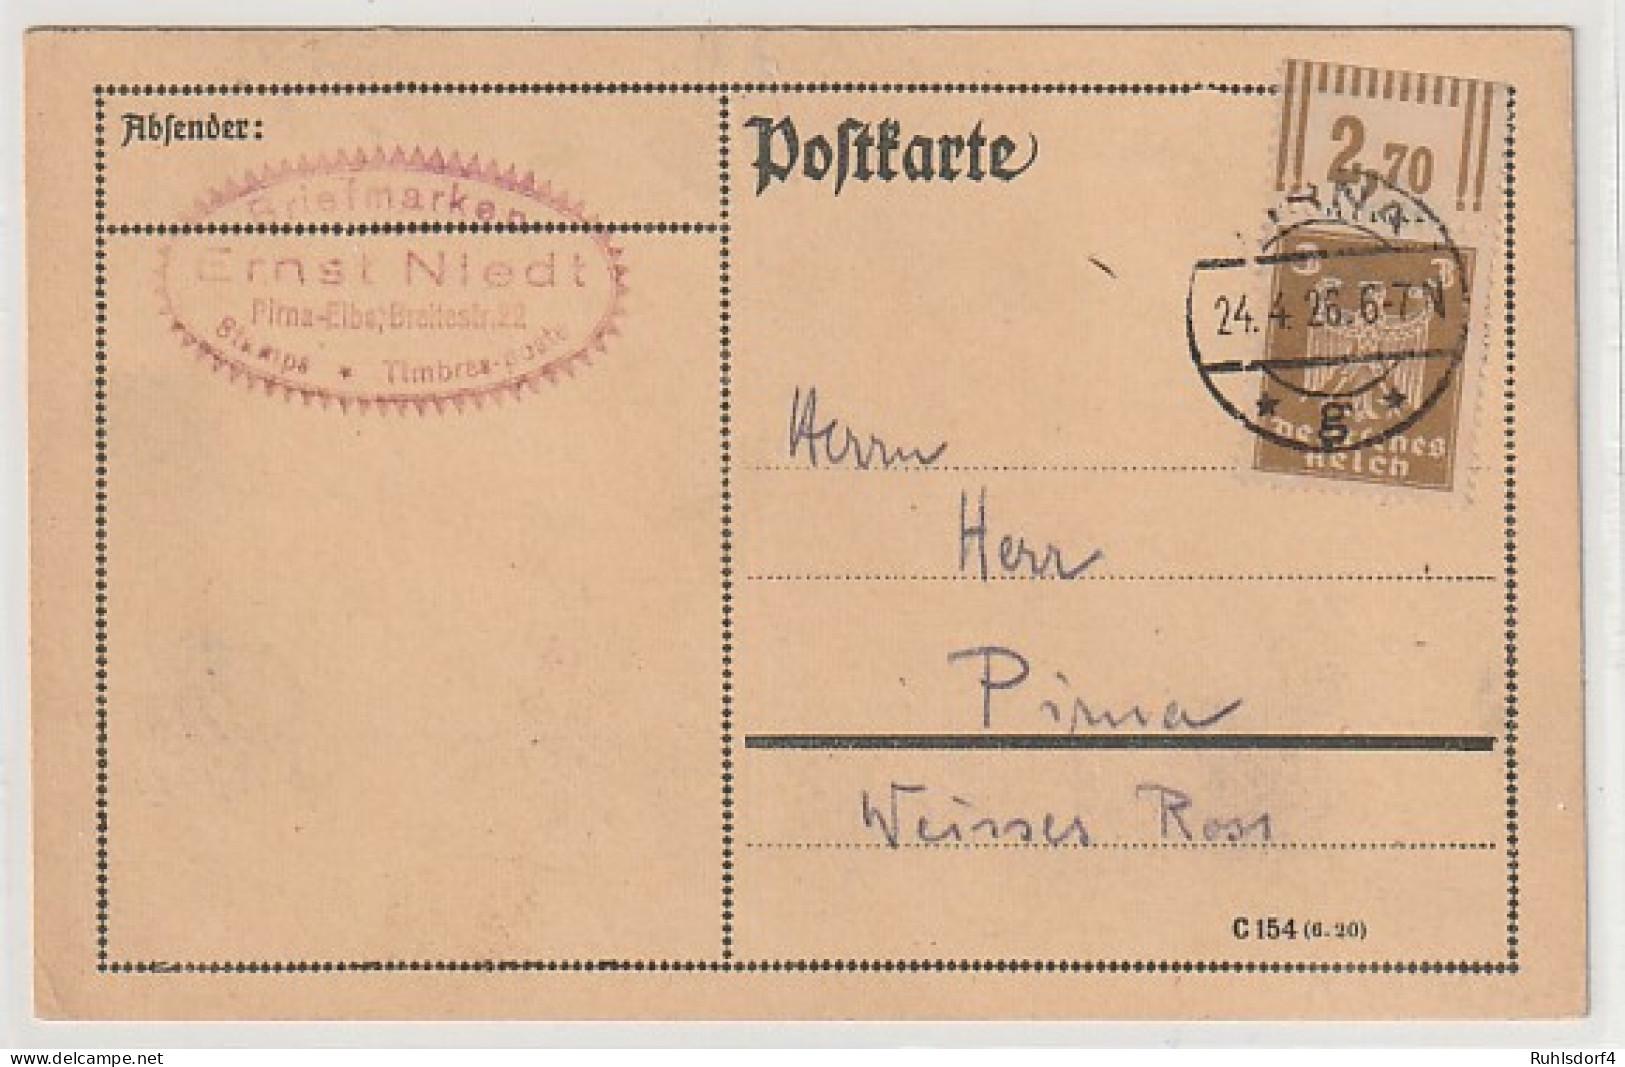 Absender:
Briefmarken
Ernst Niedt
Pirna-Elbe, Breitestr. 22
Stamps * Timbres-poste
Postkarte
2,70
PIRNA
24. 4. 26. 6-7 N
* g *
3 3
Deutsches
Reich
Herrn
Herr
Pirna
Weisses Ross
C 154 (6. 20)
delcampe.net
Ruhlsdorf4